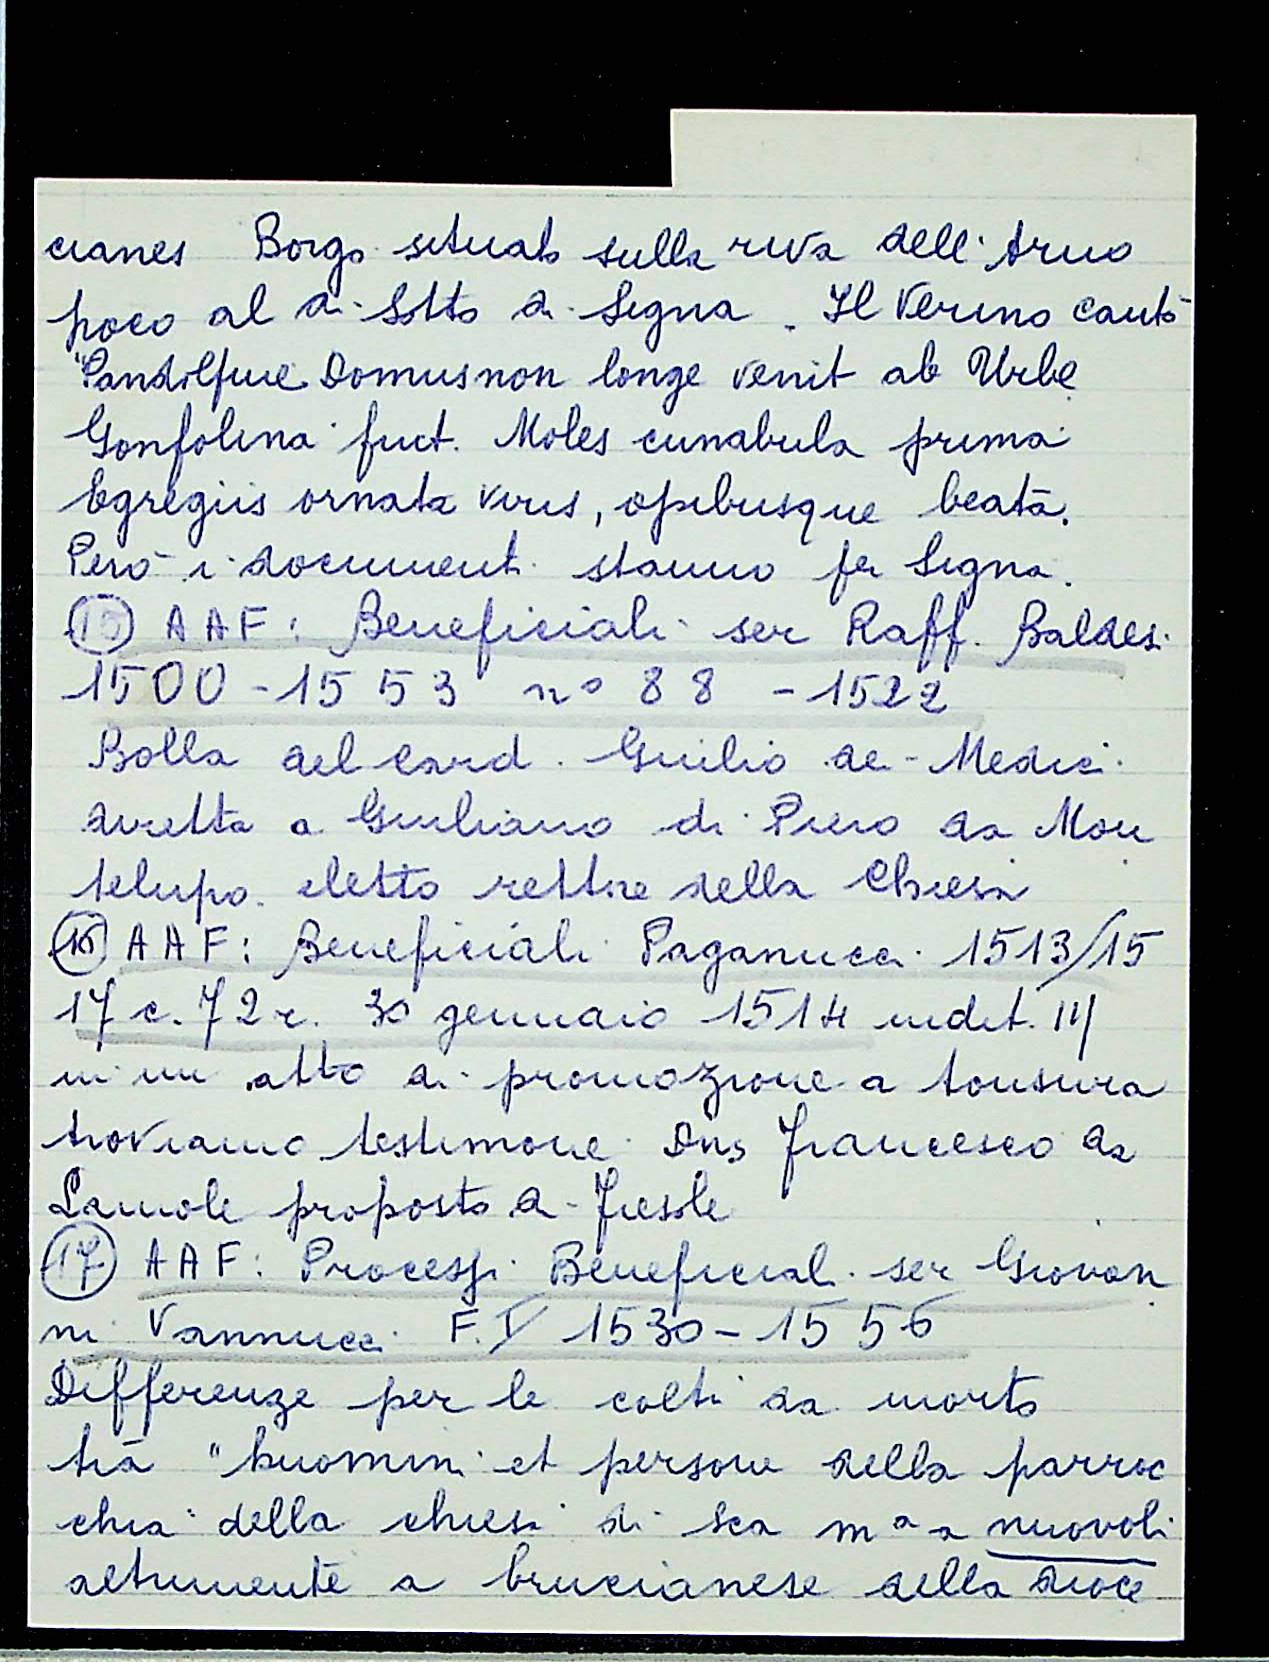 cianes Borgo situato sulla riva dell'Arno
poco al di sotto di Segna. Il Verino cantò
"Pandilfine Domus non longe venit ab Urbe
Gonfolina fuct. Moles cunabula prima
Egregiis ornata viris, opibusque beata.
Però i documenti stanno per Segna.
(15) AAF: Beneficiali ser Raff. Baldesi
1500-1553 n° 88 - 1522
Bolla del Card. Giulio de Medici
diretta a Giuliano di Piero da Mon
telupo eletto rettore della Chiesa
(16) AAF: Beneficiali Paganucci 1513/15
17 c. 72 r. 30 gennaio 1514 indit. III
in un atto di promozione a tonsura
troviamo testimone Dns Francesco da
Lamole proposto di Fiesole
(17) AAF: Processi Beneficiali ser Giovan
ni Vannucci F. I 1530-1556
Differenze per le colti da morto
trà "huomini et persone della parroc
chia della chiesa di Sca Mª a nuovoli
altrimente a brucianese della dioce